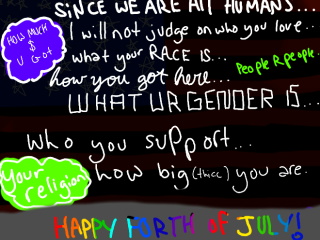 SINCE WE ARE All HUMANS...
I will not judge on who you love...
HOW MUCH $ U GOt
what your RACE is...
People R people..
how you got here...
WHAT UR GENDER IS...
who you support...
your religion
how big (thicc) you are.
HAPPY FORTH of JULY!